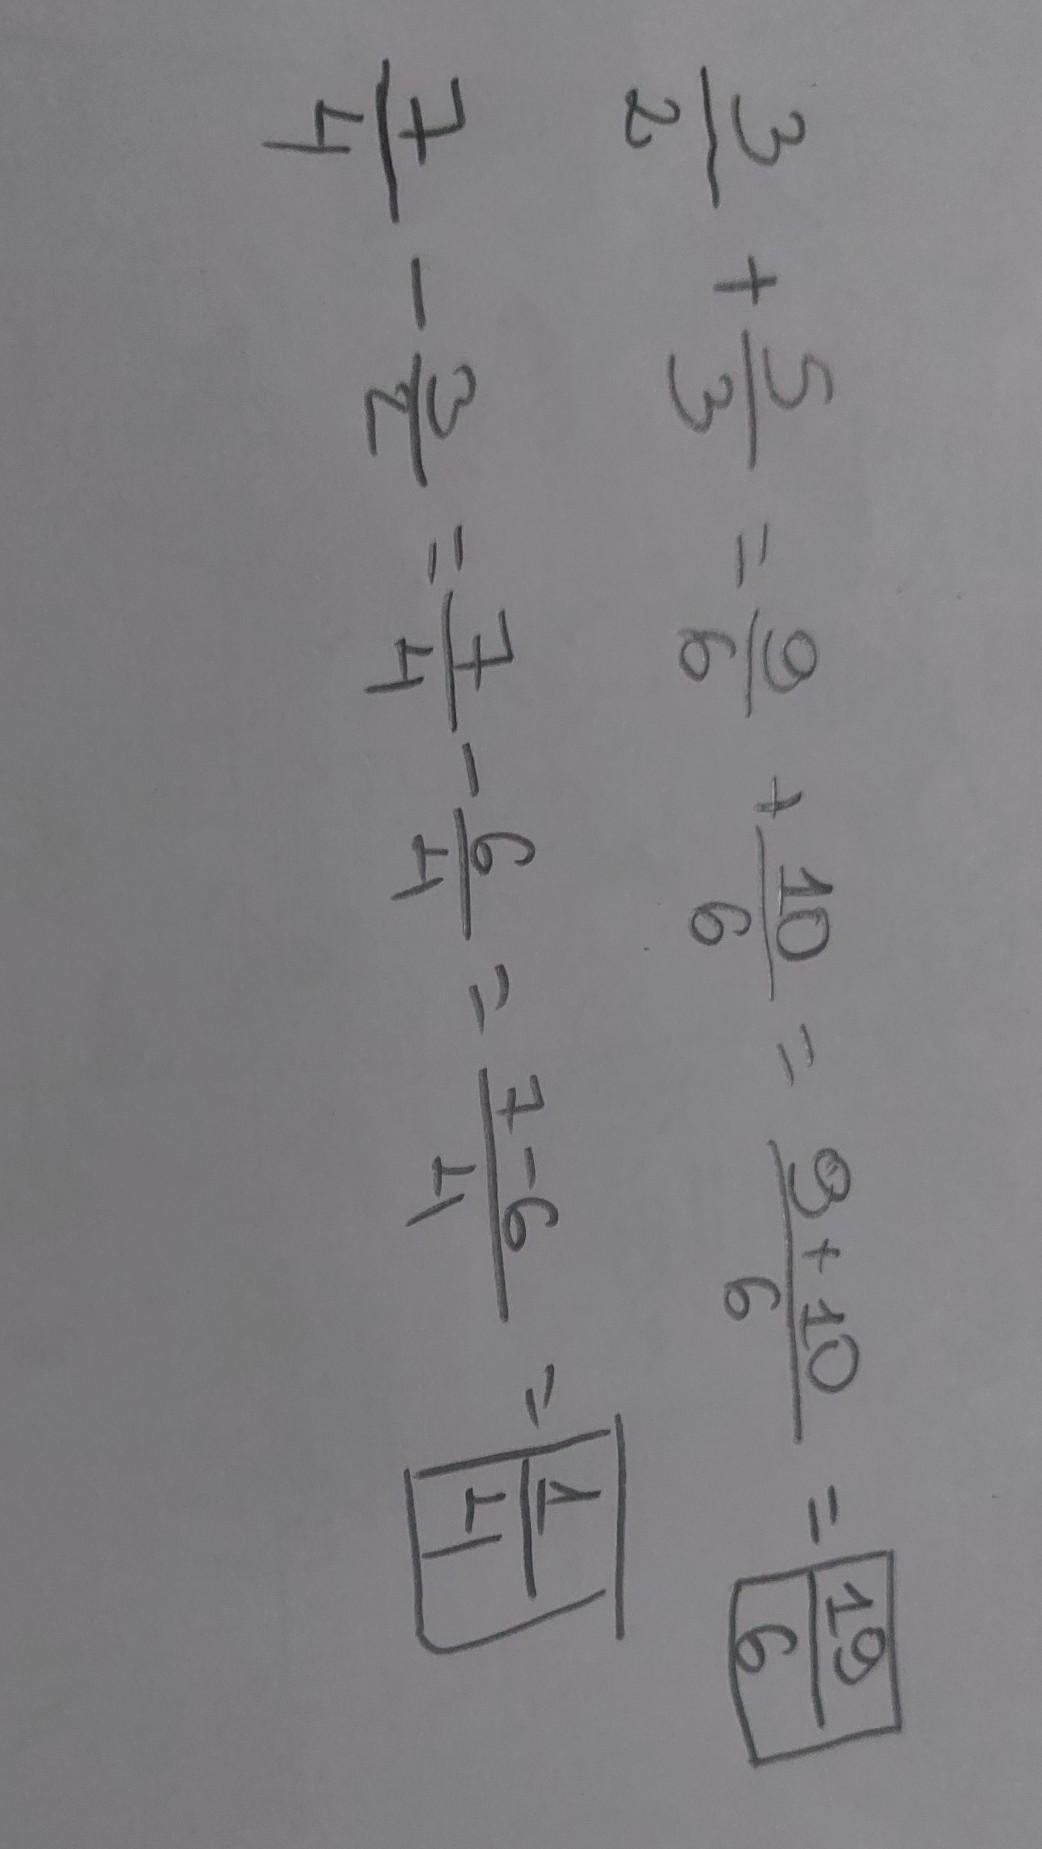 3/2 + 5/3 = 9/6 + 10/6 = 9+10/6 = 19/6
7/4 - 3/2 = 7/4 - 6/4 = 7-6/4 = 1/4